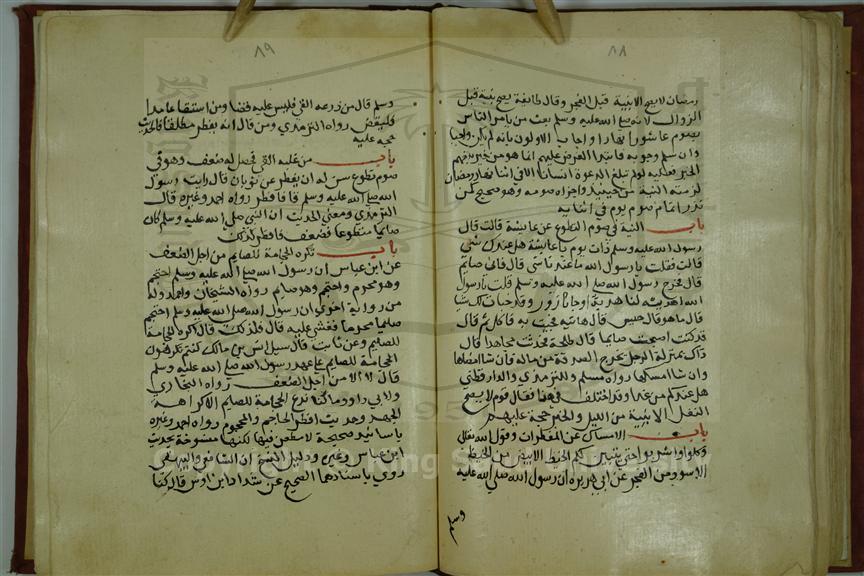 ٨٨
رمضان لا يصح الا بنية قبل الفجر وقال طائفة يصح بنية قبل
الزوال لانه صلى الله عليه وسلم بعث من يامر الناس
بصوم عاشورا نهارا واجاب الاولون بانه لم يكن واجبا
وان سلم وجوبه فابتدا الفرض عليهم انما هو من حين بلغهم
الخبر فعليه لو لم تبلغ الدعوة انسانا الا في اثنا نهار رمضان
لزمته النية من حينيذ واجزاه صومه وهو صحيح كمن
نذر اتمام صوم يوم في اثنايه
باب النية في صوم التطوع عن عايشة قالت قال
رسول الله عليه وسلم ذات يوم يا عايشة هل عندك شي
قالت فقلت يا رسول الله ما عندنا شي قال فاني صايم
قال فخرج رسول الله صلى الله عليه وسلم قلت يا رسول
الله اهديت لنا هدية او جانا زور وقد خبات لك شيا
قال ما هو قال حيس قال هاتيه فجيت به فاكل ثم قال
قد كنت اصبحت صايما قال طلحة فحدثت مجاهدا قال
ذاك بمنزلة الرجل يخرج الصدقة من ماله فان شا امضاها
وان شا امسكها رواه مسلم وللترمذي والدارقطني
هل عندكم من غدا وقد اختلف في هذا فقال قوم لا يصح
النفل الا بنية من الليل والخبر حجة عليهم
باب الامساك عن المفطرات وقول الله تعالى
وكلوا واشربوا حتى يتبين لكم الخيط الابيض من الخيط
الاسود من الفجر عن ابي هريرة ان رسول الله صلى الله عليه
وسلم
٨٩
وسلم قال من زرعه القي فليس عليه قضا ومن استقا عامدا
فليقض رواه الترمذي ومن قال انه يفطر مطلقا فالحديث
حجة عليه
باب من غلبه القي فحصل له ضعف وهو في
صوم تطوع سن له ان يفطر عن ثوبان قال رايت رسول
الله صلى الله عليه وسلم قا فافطر رواه احمد وغيره قال
الترمذي ومعنى الحديث ان النبي صلى الله عليه وسلم كان
صايما متطوعا فضعف فافطر لذلك
باب تكره الحجامة للصايم من اجل الضعف
عن ابن عباس ان رسول الله صلى الله عليه وسلم احتجم
وهو محرم واحتجم وهو صايم رواه الشيخان واحمد وله
من رواية اخرى ان رسول الله صلى الله عليه وسلم احتجم
صايما محرما فغشي عليه قال فلذلك قال اكره الحجامة
للصايم وعن ثابت قال سيل انس بن مالك كنتم تكرهون
الحجامة للصايم على عهد رسول الله صلى الله عليه وسلم
قال لا الا من اجل الضعف رواه البخاري
ولابي داود ما كنا ندع الحجامة للصايم الا كراهة
الجهد وحديث افطر الحاجم والمحجوم رواه احمد وغيره
باسانيد صحيحة لا مطعن فيها لكنها منسوخة بحديث
ابن عباس وغيره ودليل النسخ ان الشافعي والبيهقي
روي باسنادهما الصحيح عن شداد ابن اوس قال كنا